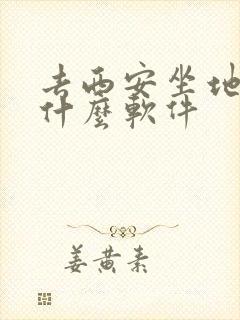 去西安坐地
什麼軟件
姜黄素